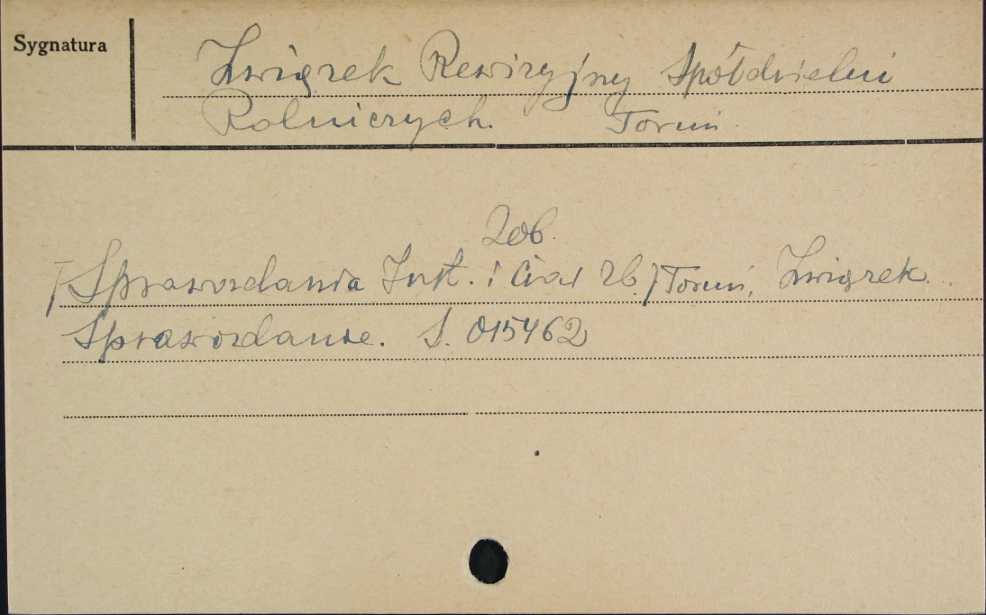 Sygnatura
Związek Rewizyjny Spółdzielni
Rolniczych. Toruń
zob.
[Sprawozdania Inst. i Ciał Zb.] Toruń, Związek
Sprawozdanie. S. 015462